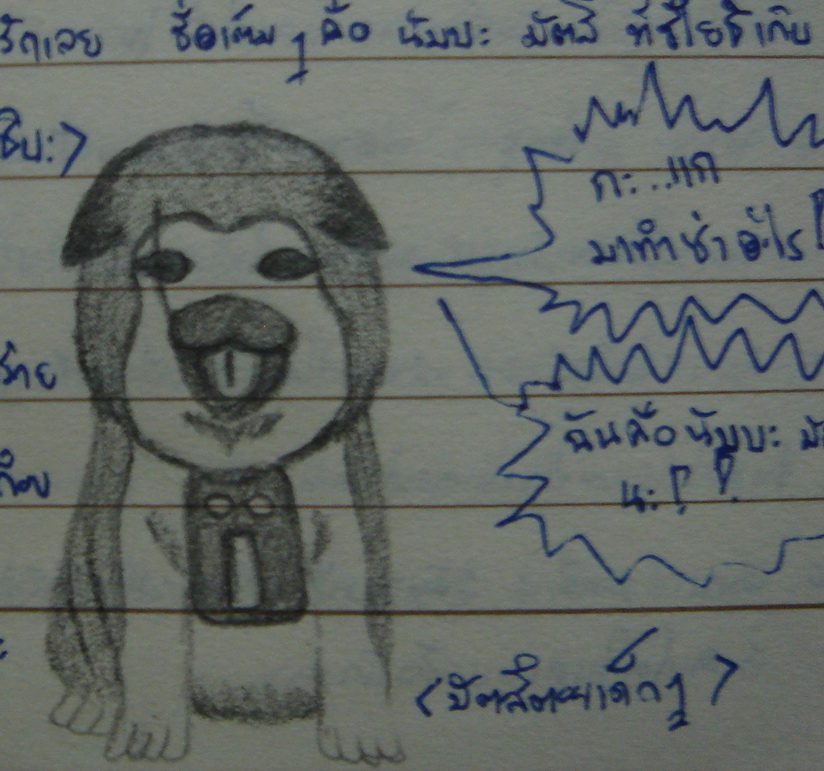 รักเลย ชื่อเต็มๆ คือ นัมบะ มัตสึ ที่ชิโยริเก็บ
ชิบะ>
กะ..แก
มาทำซ่าอะไร!
ร้าย
ฉันคือนัมบะ มั
นะ!!
<มัตสึตอนเด็กๆ>